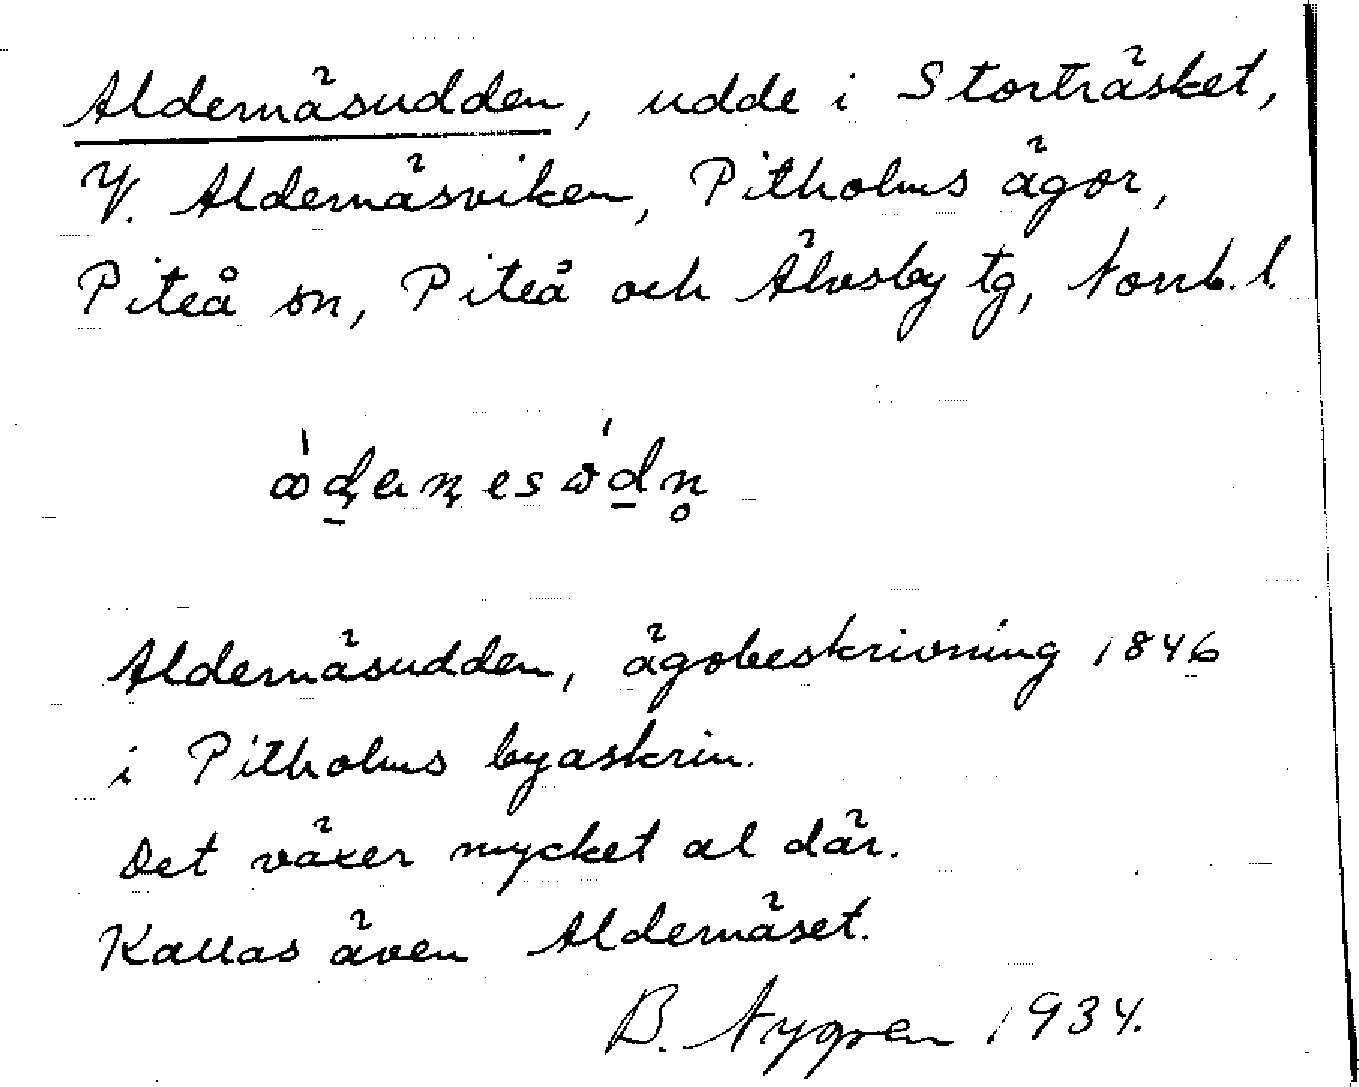 Aldernäsudden, udde i Storträsket,
V. Aldernäsviken, Pitholms ägor,
Piteå sn, Piteå och Älvsby tg, Norrb. l.
Aldernäsudden, ägobeskrivning 1846
i Pitholms byaskrin.
Det växer mycket al där.
Kallas även Aldernäset.
B. Nygren 1934.